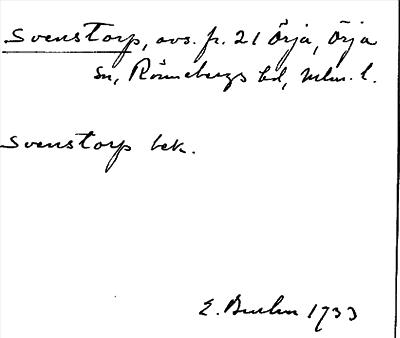 Svenstorp, avs. fr. 21 Örja, Örja
sn, Rönnebergs hd, Mlm. l.
Svenstorp bek.
E. 1733